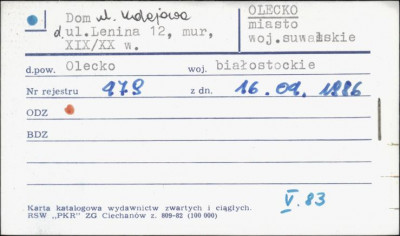 Dom ul. Kolejowa
d.ul.Lenina 12, mur,
XIX/XX w.
OLECKO
miasto
woj.suwalskie
d.pow. Olecko woj. białostockie
Nr rejestru 979 z dn. 16.09.1986
ODZ
BDZ
V. 83
Karta katalogowa wydawnictw zwartych i ciągłych.
RSW „PKR" ZG Ciechanów z. 809-82 (100 000)